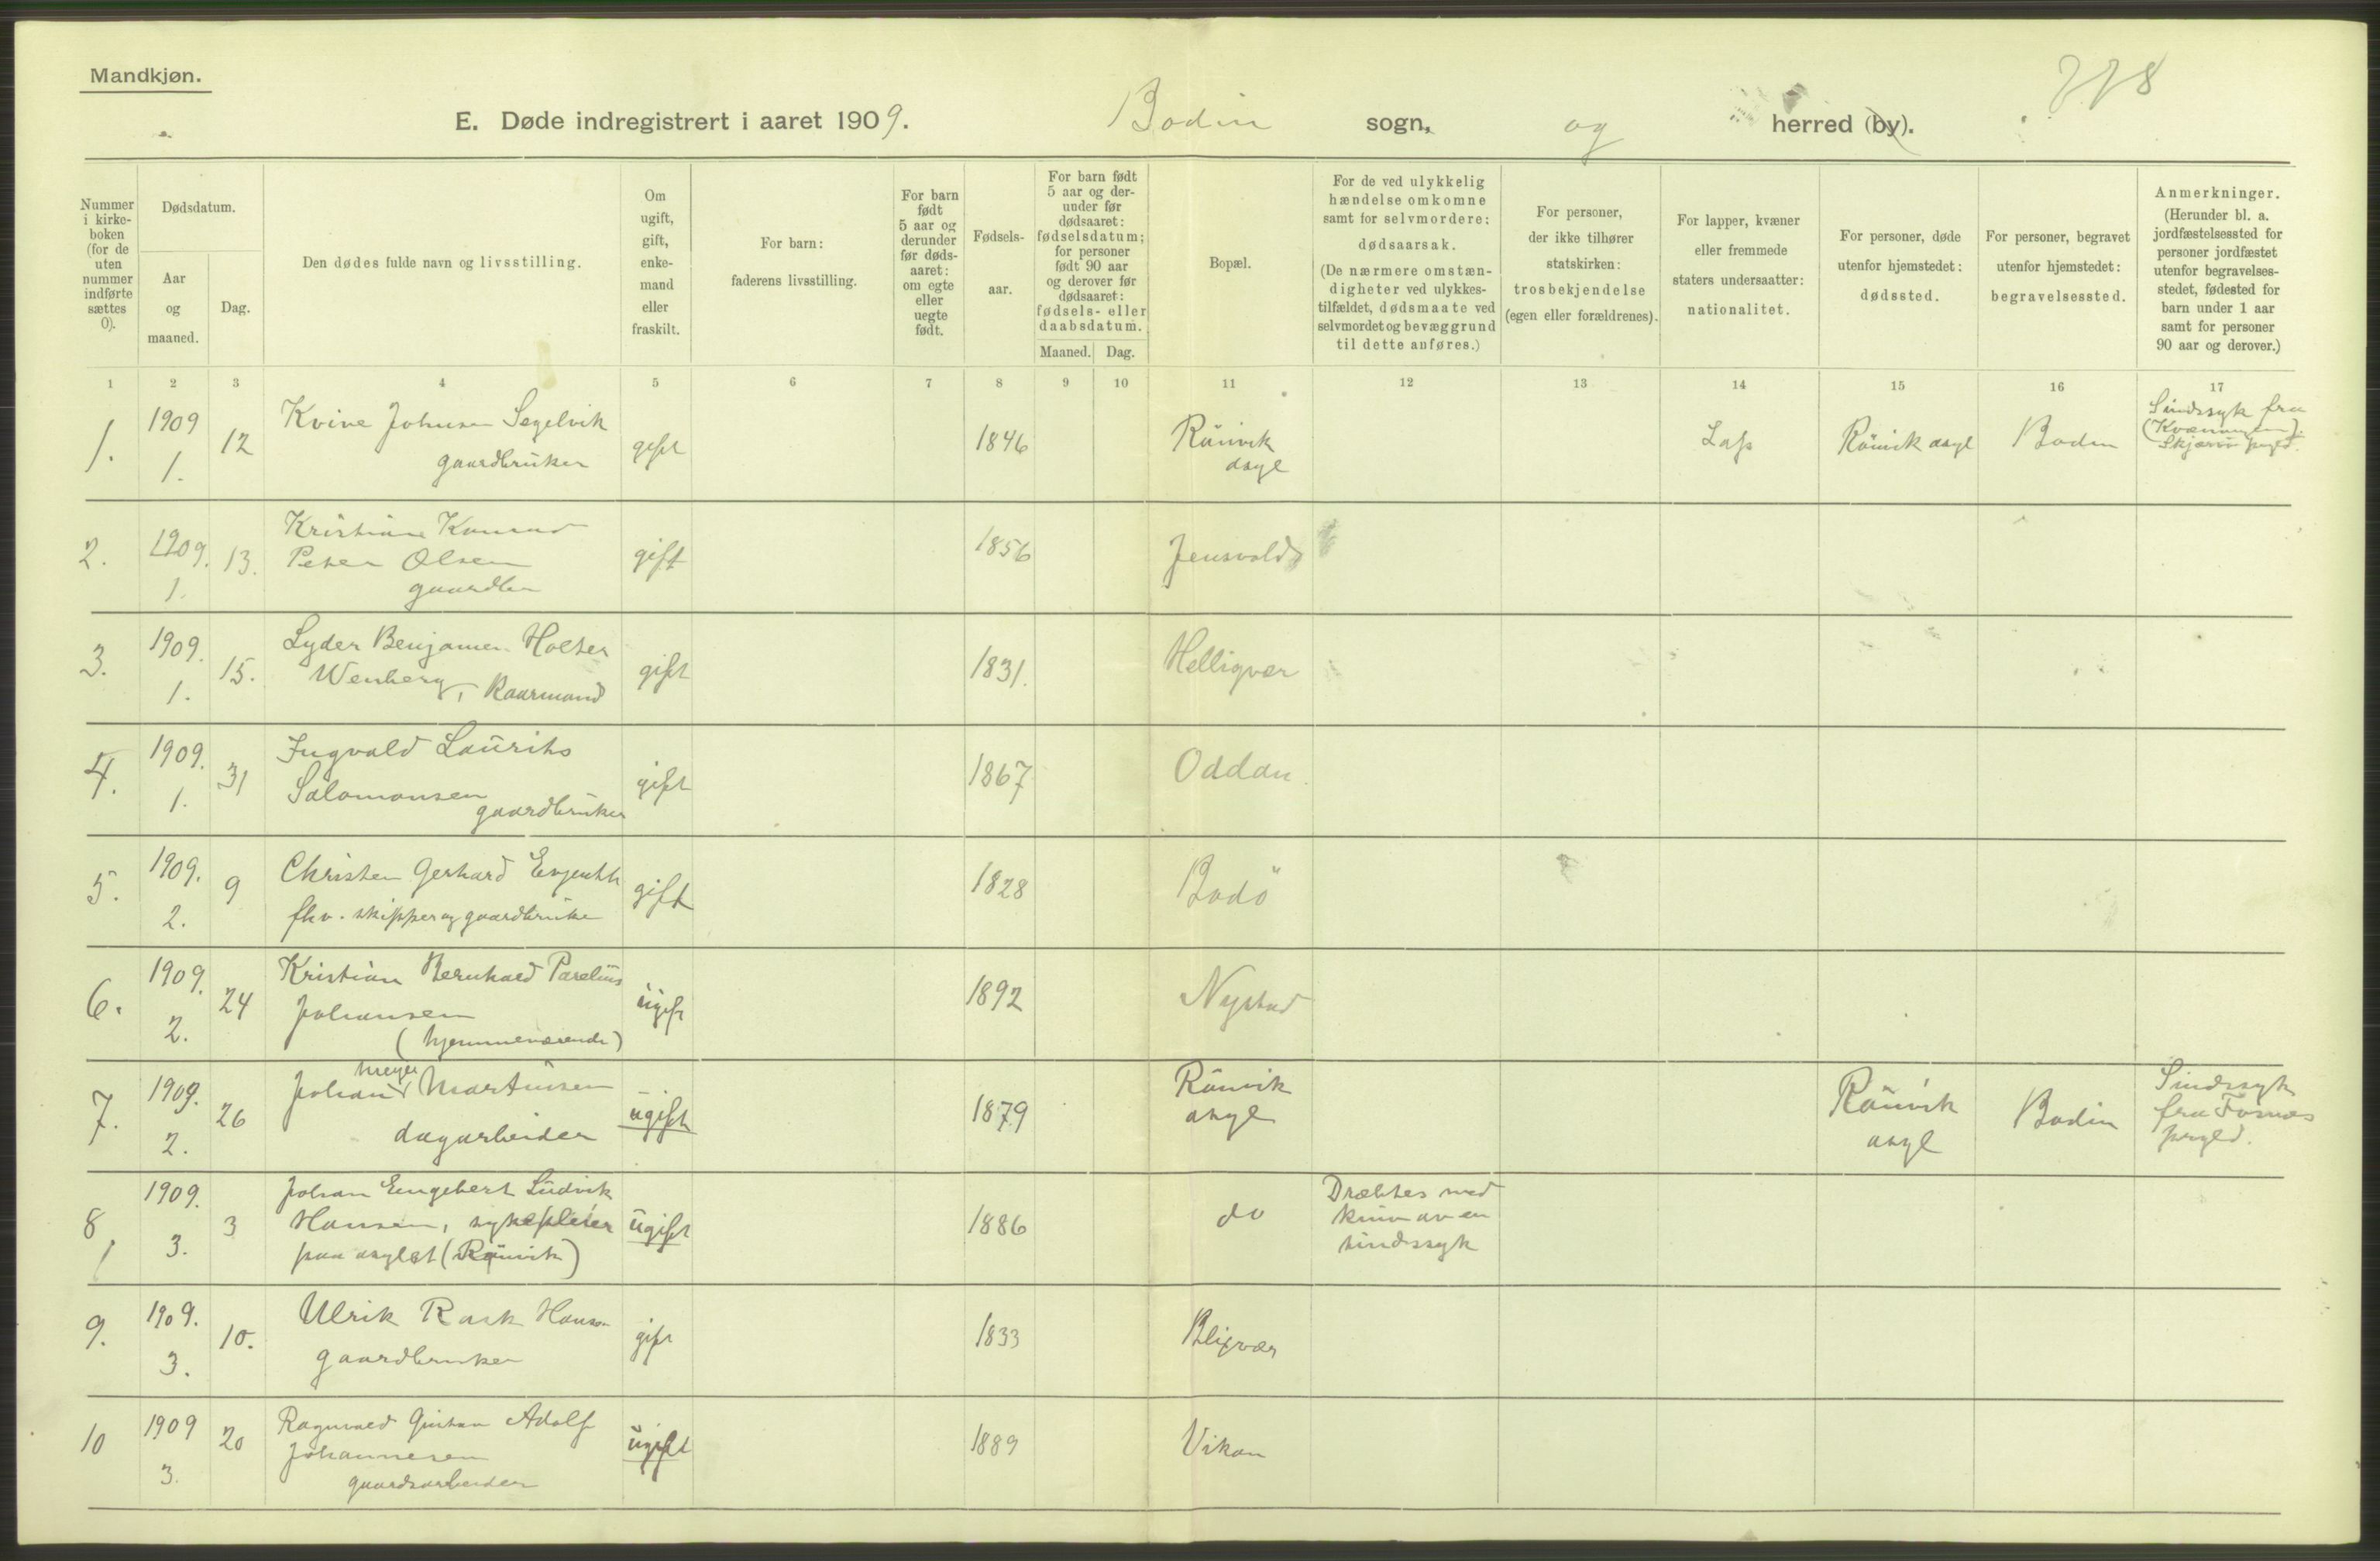 Mandkjøn.
E. Døde indregistrert i aaret 1909. Bodin sogn, og herred (by).
Nummer i kirke- boken (for de uten nummer indførte sættes 0).
Dødsdatum.
Aar og maaned.
Dag.
Den dødes fulde navn og livsstilling.
Om ugift, gift, enke- mand eller fraskilt.
For barn: faderens livsstilling.
For barn født 5 aar og derunder før døds- aaret: om egte eller uegte født.
Fødsels- aar.
For barn født 5 aar og der- under før dødsaaret: fødselsdatum; for personer født 90 aar og derover før dødsaaret: fødsels- eller daabsdatum.
Maaned. Dag.
Bopæl.
For de ved ulykkelig hændelse omkomne samt for selvmordere: dødsaarsak. (De nærmere omstæn- digheter ved ulykkes- tilfældet, dødsmaate ved selvmordet og bevæggrund til dette anføres.)
For personer, der ikke tilhører statskirken: trosbekjendelse (egen eller forældrenes).
For lapper, kvæner eller fremmede staters undersaatter: nationalitet.
For personer, døde utenfor hjemstedet: dødssted.
For personer, begravet utenfor hjemstedet: begravelsessted.
Anmerkninger. (Herunder bl. a. jordfæstelsessted for personer jordfæstet utenfor begravelses- stedet, fødested for barn under 1 aar samt for personer 90 aar og derover.)
1 2 3 4 5 6 7 8 9 10 11 12 13 14 15 16 17
1. 1909 1. 12 Kvive Johnsen Segelvik gaardbruker gift 1846 Rönvik asyl Lap Rönvik asyl Bodin Sindssyk fra (Kvænangen). Skjærvö prgld.
2. 1909. 1. 13. Kristian Konrad Peter Olsen gaardbr gift 1856 Jensvold
3. 1909. 1. 15. Lyder Benjamin Holter Wenberg, Kaarmand gift 1831. Helligvær
4. 1909. 1. 31 Ingvald Laurits Salomonsen gaardbruker gift 1867 Oddan.
5. 1909. 2. 9 Christen Gerhard Evjenth fhv. skipper og gaardbruke gift 1828 Bodö
6. 1909. 2. 24 Kristian Bernhard Parelius Johansen (hjemmeværende) ugift 1892 Nystad
7. 1909. 2. 26 Johan Meyer Martinsen dagarbeider ugift 1879 Rönvik asyl Rönvik asyl Bodin Sindssyk fra Fosnæs prgld.
8 1909. 3. 3 Johan Engebert Ludvik Hansen, sykepleier paa asylet (Rönvik) ugift 1886 do Dræbtes med kniv av en sindssyk
9. 1909. 3. 10. Ulrik Rask Hansen gaardbruker gift 1833 Bligvær
10 1909 3. 20 Ragnvald Gustav Adolf Johannesen gaardsarbeider ugift 1889 Vikan